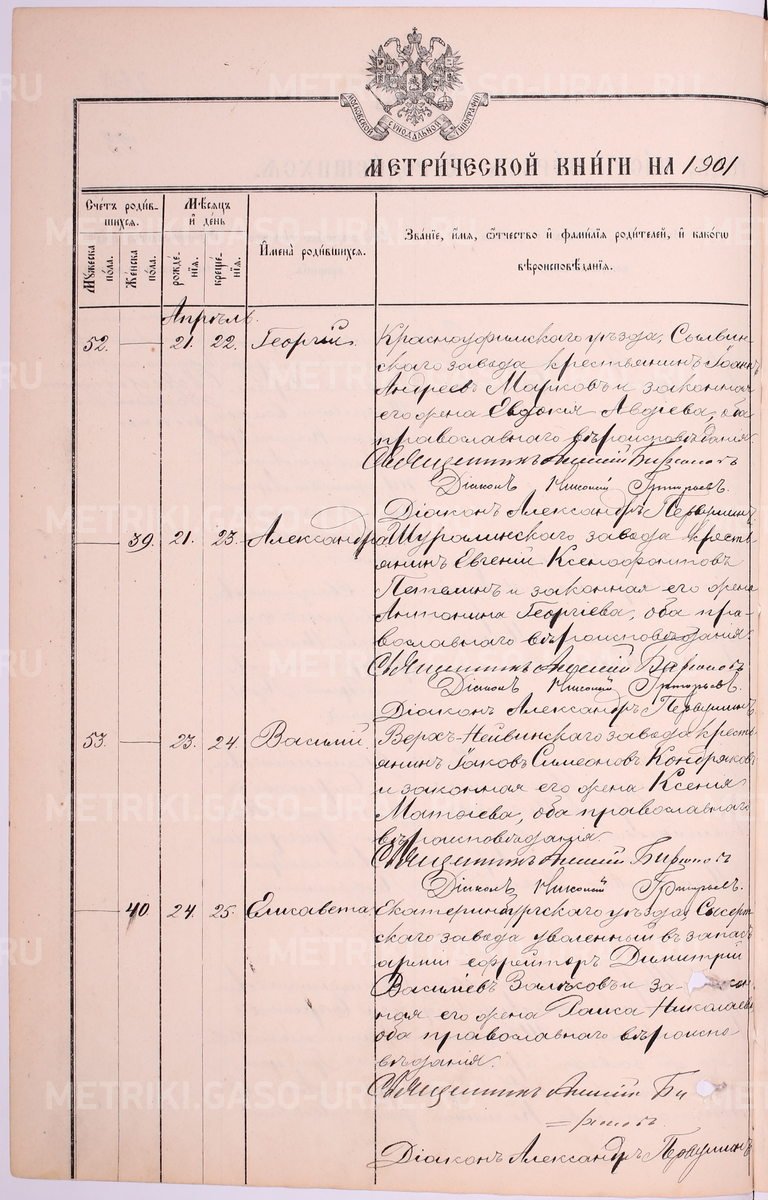 МОСКОВСКОЙ СѴНОДАЛЬНОЙ ТИПОГРАФІИ
МЕТРИ́ЧЕСКОЙ КНИ́ГИ НА 1901
Сче́тъ роди́в-
шихся.
Мѣ́сяцъ
и҆ де́нь
Му́жеска
по́ла.
Же́нска
по́ла.
рожде́-
нїя.
креще́-
нїя.
И҆мена̀ роди́вшихся.
Зва́нїе, и҆́мя, ѻ҆́тчество и҆ фами́лїя роди́телей, и҆ како́гѡ
вѣроисповѣ́данїя.
Апрѣль.
52. — 21. 22. Георгій. Красноуфимскаго уѣзда, Сылвин-
скаго завода крестьянинъ Іоаннъ
Андреевъ Марковъ и законная
его жена Евдокія Авдіева, оба
православнаго вѣроисповѣданія
Священникъ Бирюковъ
Діаконъ Григорьевъ.
Діаконъ Александръ
— 39. 21. 23. Александра. Шуралинскаго завода кресть-
янинъ Евгеній Ксенофонтовъ
Петелинъ и законная его жена
Антонина Георгіева, оба пра-
вославнаго вѣроисповѣданія.
Священникъ Бирюковъ
Діаконъ Григорьевъ.
Діаконъ Александръ
53. — 23. 24. Василій. Верхъ-Нейвинскаго завода кресть-
янинъ Іаковъ Симеоновъ Кондряковъ
и законная его жена Ксенія
Матѳіева, оба православнаго
вѣроисповѣданія.
Священникъ Бирюковъ
Діаконъ Григорьевъ.
— 40. 24. 25. Елисавета Екатеринбургскаго уѣзда, Сысерт-
скаго завода уволенный въ запасъ
арміи ефрейторъ Димитрій
Василіевъ и за-
ная его жена Раиса Николаева
оба православнаго вѣроиспо-
вѣданія.
Священникъ Би
= рюковъ.
Діаконъ Александръ
METRIKI.GASO-URAL.RU